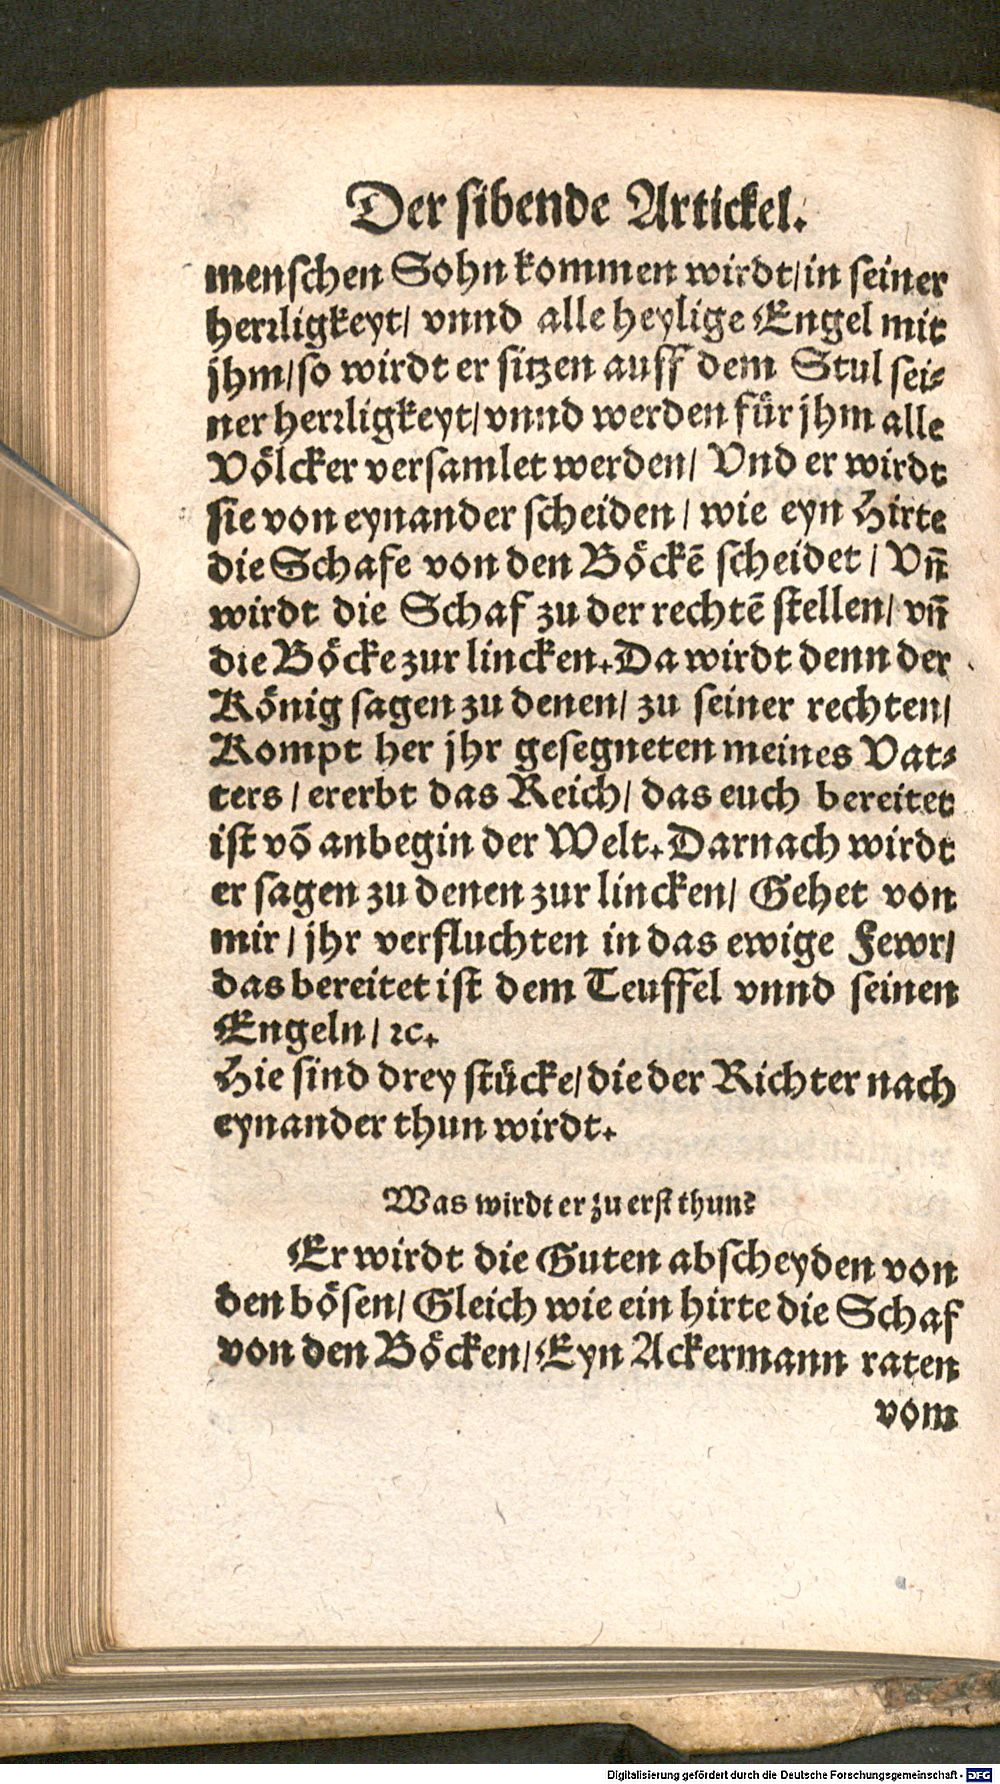 Der sibende Artickel.
menschen Sohn kommen wirdt/in seiner
herꝛligkeyt/ vnnd alle heylige Engel mit
jhm/so wirdt er sitzen auff dem Stul sei⸗
ner herꝛligkeyt/vnnd werden für jhm alle
Völcker versamlet werden/ Vnd er wirdt
sie von eynander scheiden / wie eyn Hirte
die Schafe von den Böckē scheidet / Vñ
wirdt die Schaf zu der rechtē stellen/ vñ
die Böcke zur lincken. Da wirdt denn der
König sagen zu denen/ zu seiner rechten/
Kompt her jhr gesegneten meines Vat⸗
ters / ererbt das Reich/ das euch bereitet
ist vō anbegin der Welt. Darnach wirdt
er sagen zu denen zur lincken/ Gehet von
mir / jhr verfluchten in das ewige Fewr/
das bereitet ist dem Teuffel vnnd seinen
Engeln / ꝛc.
Hie sind drey stücke/die der Richter nach
eynander thun wirdt.
Was wirdt er zu erst thun?
Er wirdt die Guten abscheyden von
den bösen/ Gleich wie ein hirte die Schaf
von den Böcken/Eyn Ackermann raten
vom
Digitalisierung gefördert durch die Deutsche Forschungsgemeinschaft - DFG